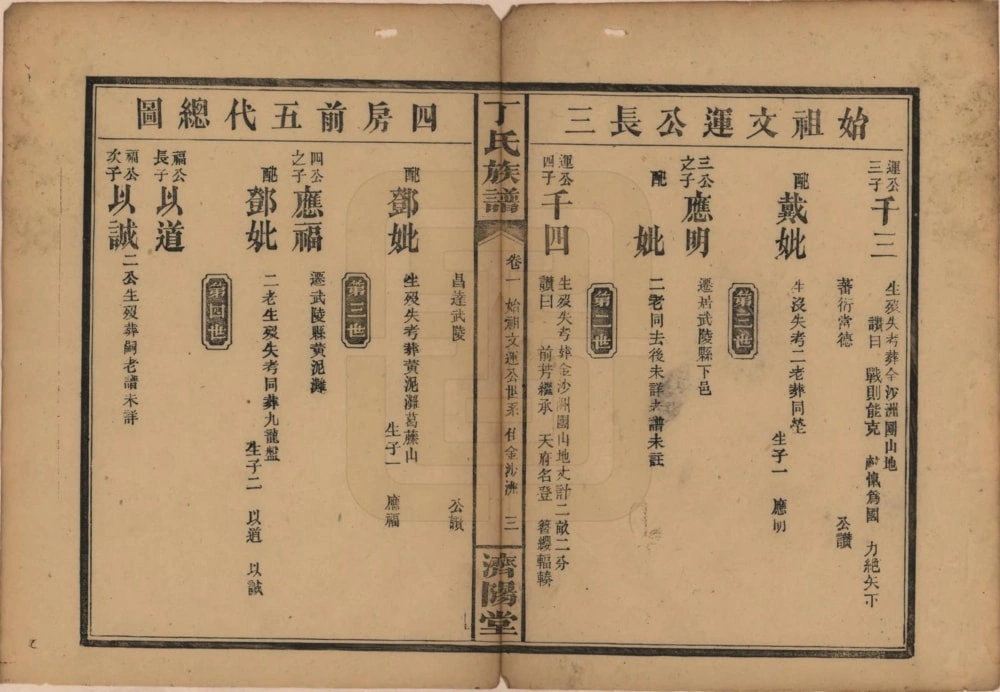 始祖文運公長三
運公三子 千三
生歿失考葬金沙洲團山地
讚曰 戰則能克 懷為國 力絕矢下
蕃衍常德 公讚
配 戴妣
生沒失考二老葬同塋
生子一 應明
第三世
三公之子 應明
遷居武陵縣下邑
配 妣
二老同去後未詳老譜未註
第二世
運公四子 千四
生歿失考葬金沙洲團山地丈計二畝二分
讚曰 前芳繼承 天府名登 簪纓輻輳
丁氏族譜
卷一 始祖文運公世系 住金沙洲 三
濟陽堂
四房前五代總圖
昌達武陵 公讚
配 鄧妣
生歿失考葬黃泥灘葛藤山
生子一 應福
第三世
四公之子 應福
遷武陵縣黃泥灘
配 鄧妣
二老生歿失考同葬九龍盤
生子二 以道 以誠
第四世
福公長子 以道
福公次子 以誠
二公生歿葬嗣老譜未詳